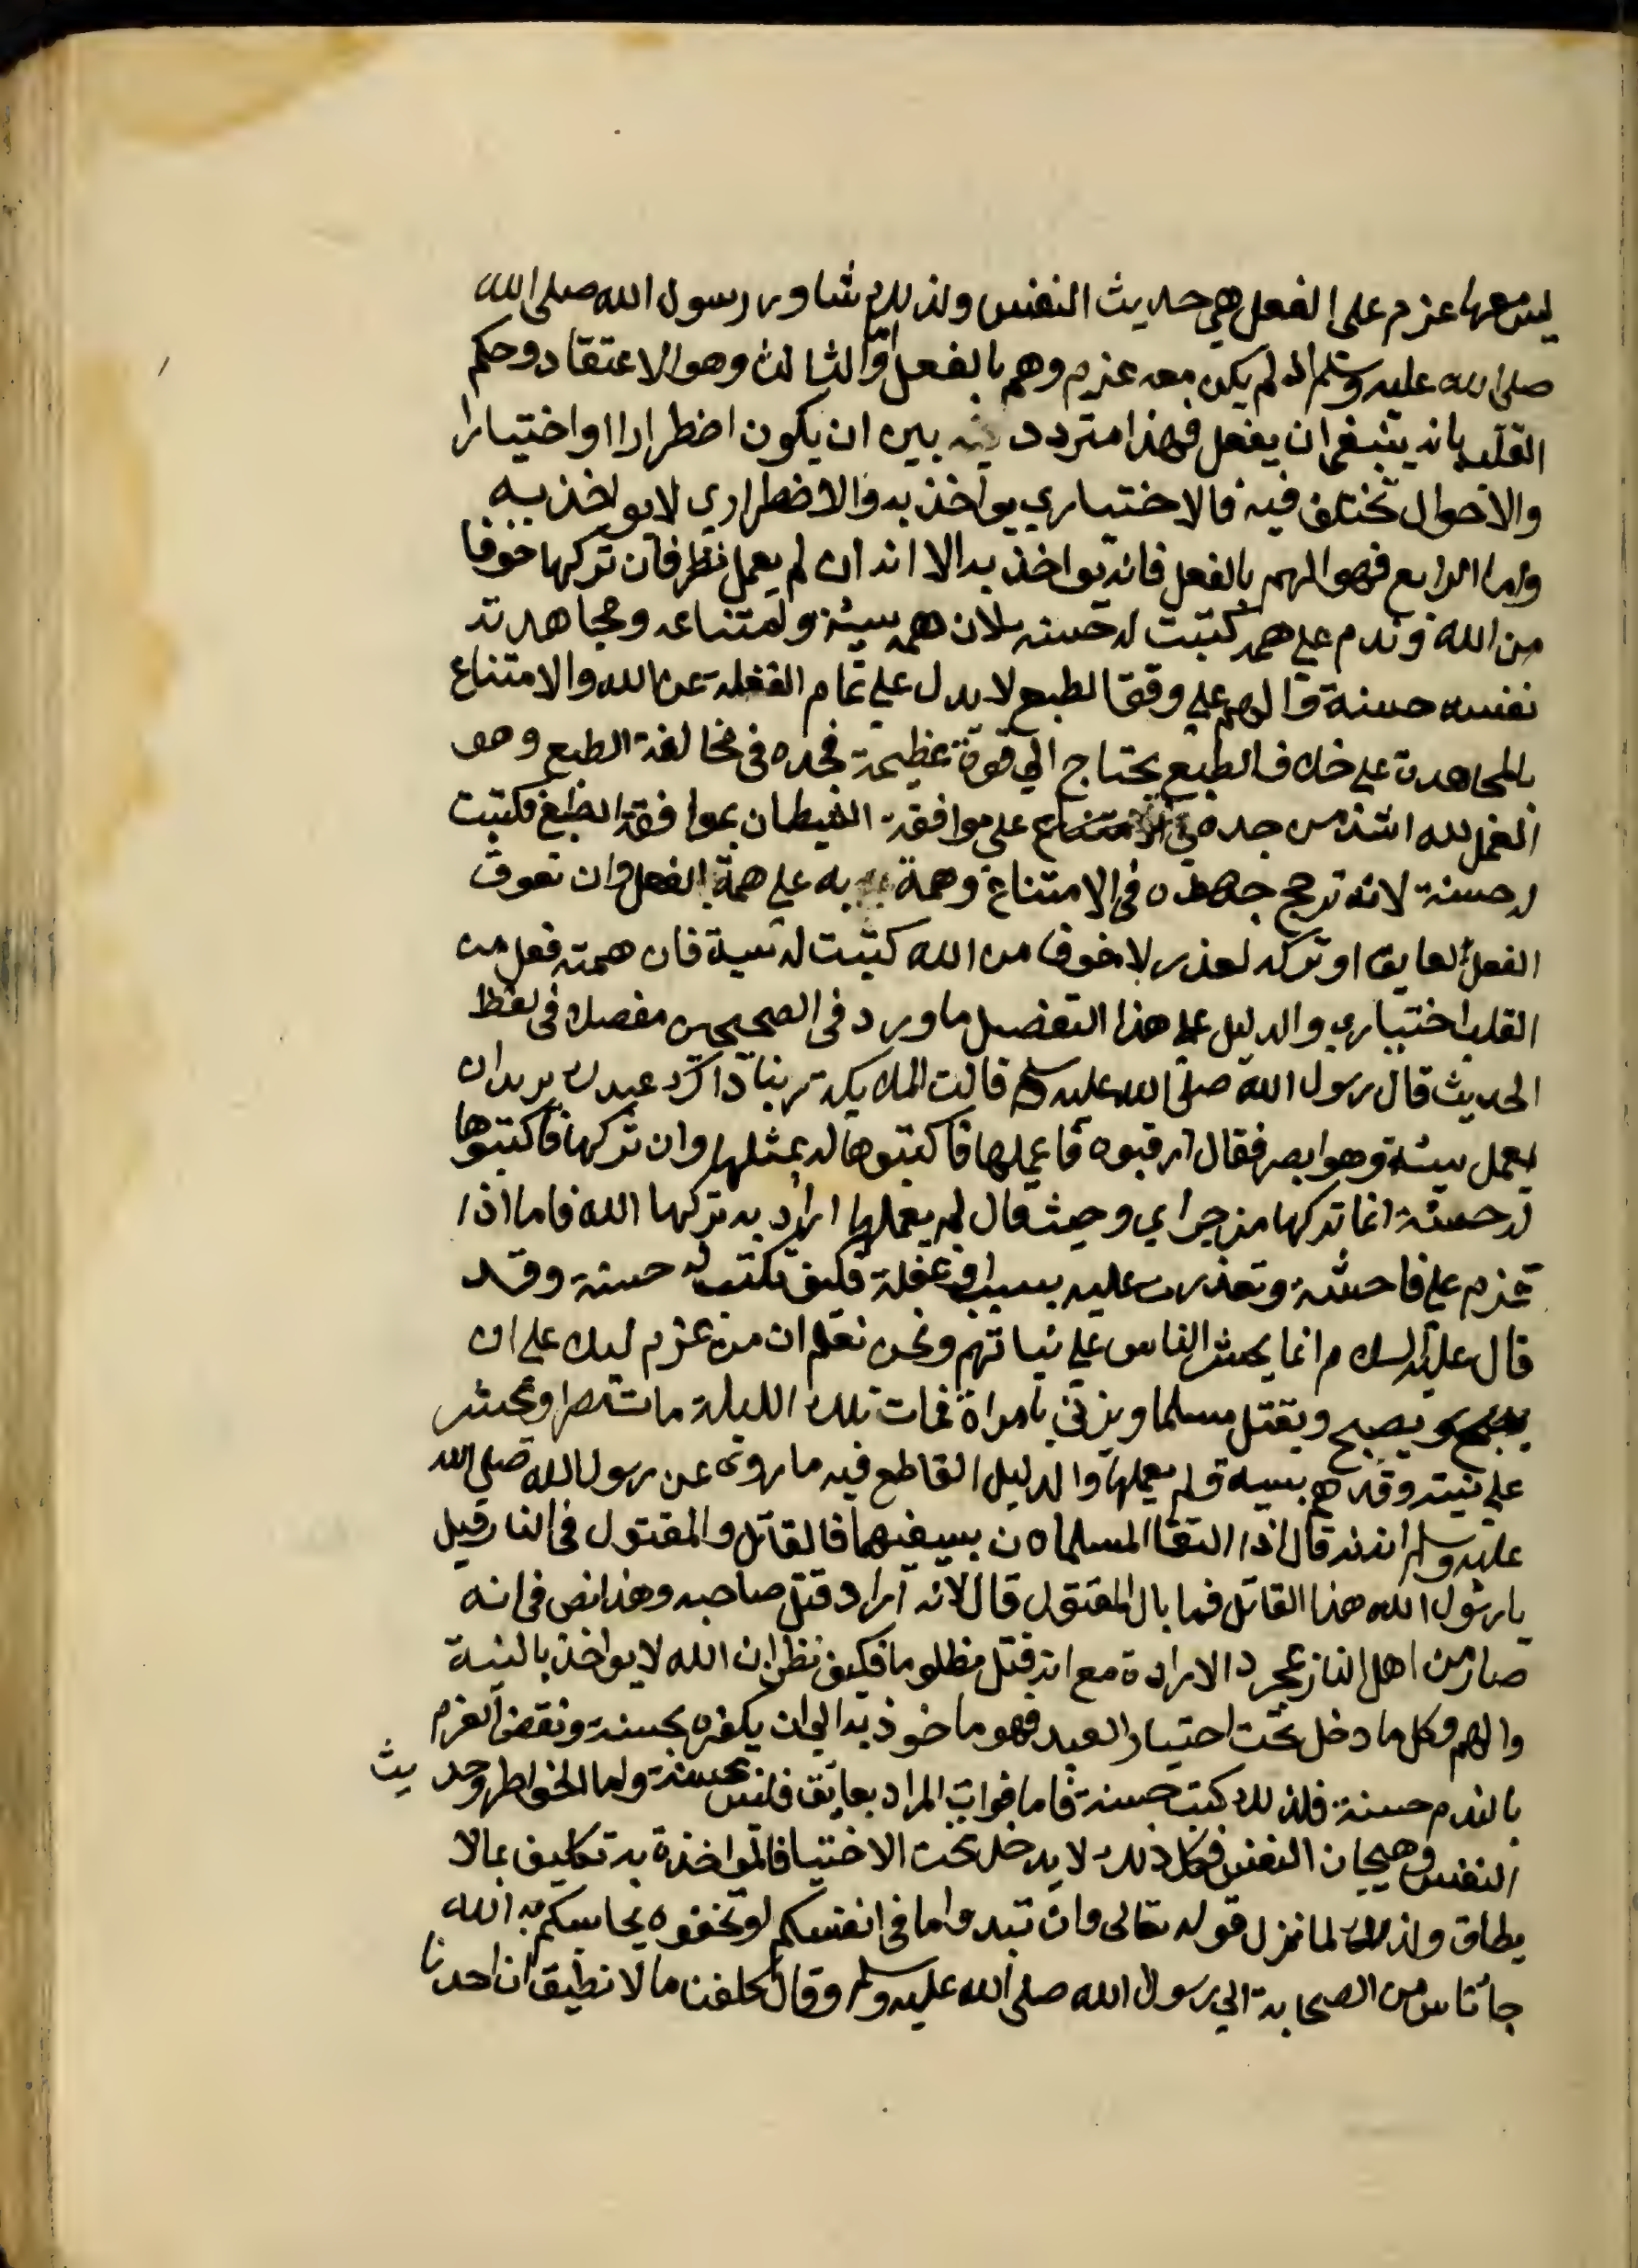 ليس معها عزم على الفعل هي حديث النفس ولذلك شاور رسول الله صلى الله
صلى الله عليه وسلم اذ لم يكن معه عزم وهم بالفعل والثالث وهو الاعتقاد وحكم
القلب بانه ينبغي ان يفعل فهذا متردد بين ان يكون اضطرارا او اختيارا
والاحوال تختلف فيه فالاختياري يواخذ به والاضطراري لا يواخذ به
واما الرابع فهو الهم بالفعل فانه يواخذ به الا انه ان لم يعمل نظر فان تركها خوفا
من الله وندم على همه كتبت له حسنة لان همه سيئة وامتناعه ومجاهدته
نفسه حسنة والهم على وفق الطبع لا يدل على تمام الغفلة عن الله والامتناع
بالمجاهدة على خلاف الطبع يحتاج الي قوة عظيمة فجده في مخالفة الطبع وهو
العمل لله اشد من جده في الامتناع على موافقة الشيطان بموافقة الطبع فكتبت
له حسنة لانه ترجح جهده في الامتناع وهمة به على همة الفعل وان تعوق
الفعل لعايق او تركه لعذر لا خوفا من الله كتبت له سية فان همته فعل من
القلب اختياري والدليل على هذا التفصيل ما ورد في الصحيحين مفصلا في لفظ
الحديث قال رسول الله صلى الله عليه وسلم قالت الملايكة ربنا ذاك عبدك يريد ان
يعمل سيئة وهو ابصر فقال ارقبوه فا عملها فاكتبوها له بمثلها وان تركها فاكتبوها
له حسنة انما تركها من جراي وحيث قال لم يعملها اراد به تركها الله فاما اذا
عزم على فاحشة وتعذرت عليه بسبب او غفلة فكيف تكتب له حسنة وقد
قال عليه السلام انما يحشر الناس على نياتهم ونحن نعلم ان من عزم ليلا على ان
يصبح ويقتل مسلما ويزني بامراة فمات تلك الليلة مات مصرا ويحشر
على نيته وقد هم بسية ولم يعملها والدليل القاطع فيه ما روى عن رسول الله صلى الله
عليه وسلم انه قال اذا التقا المسلمان بسيفيهما فالقاتل والمقتول في النار قيل
يا رسول الله هذا القاتل فما بال المقتول قال لانه اراد قتل صاحبه وهذا نص في انه
صار من اهل النار بمجرد الارادة مع انه قتل مظلوما فكيف نظن ان الله لا يواخذ بالنية
والهم وكل ما دخل تحت اختيار العبد فهو ماخوذ به الي ان يكفره بحسنة ونقض العزم
بالندم حسنة فلذلك كتبت حسنة فاما فوات المراد بعايق فليس بحسنة واما الخواطر وحديث
النفس وهيجان النفس فكل ذلك لا يدخل تحت الاختيا فالمواخذة به تكليف بما لا
يطاق ولذلك لما نزل قوله تعالى وان تبدوا ما في انفسكم او تخفوه يحاسبكم به الله
جا ناس من الصحابة الي رسول الله صلى الله عليه وسلم وقال كلفنا ما لا نطيق ان احدنا